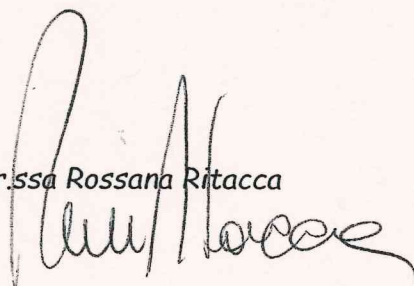 r.ssa Rossana Ritacca